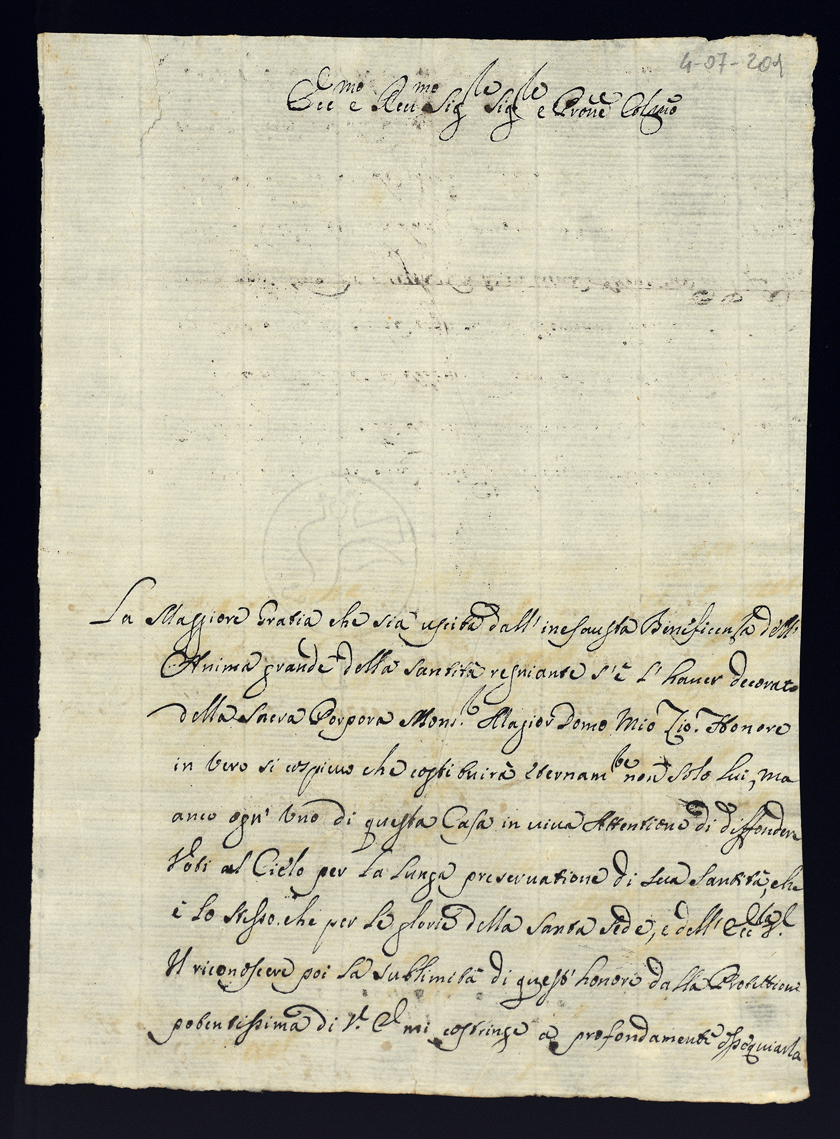 4-07-201
Ecc.mo e Reu.mo Sig.le Sig.le e Pro.ne Col.mo
La Maggiore Gratia che sia uscita dall' inesausta Beneficenza dell'
Anima grande della Santità regniante s'è l'hauer decorato
della Sacra Porpora Mons.r Magior Domo Mio Zio. Honore
in Vero si cospicuo che costituirà Eternam.te non solo Lui, ma
anco ogn' Uno di questa Casa in uiua Attentione di diffondere
Voti al Cielo per la Lunga preseruatione di sua Santità, che
è lo stesso che per le glorie della Santa Sede, e dell'
Il riconoscere poi la sublimità di quest' honore dalla Protettione
potentissima di V. E. mi costringe a profondamente ossequiarla